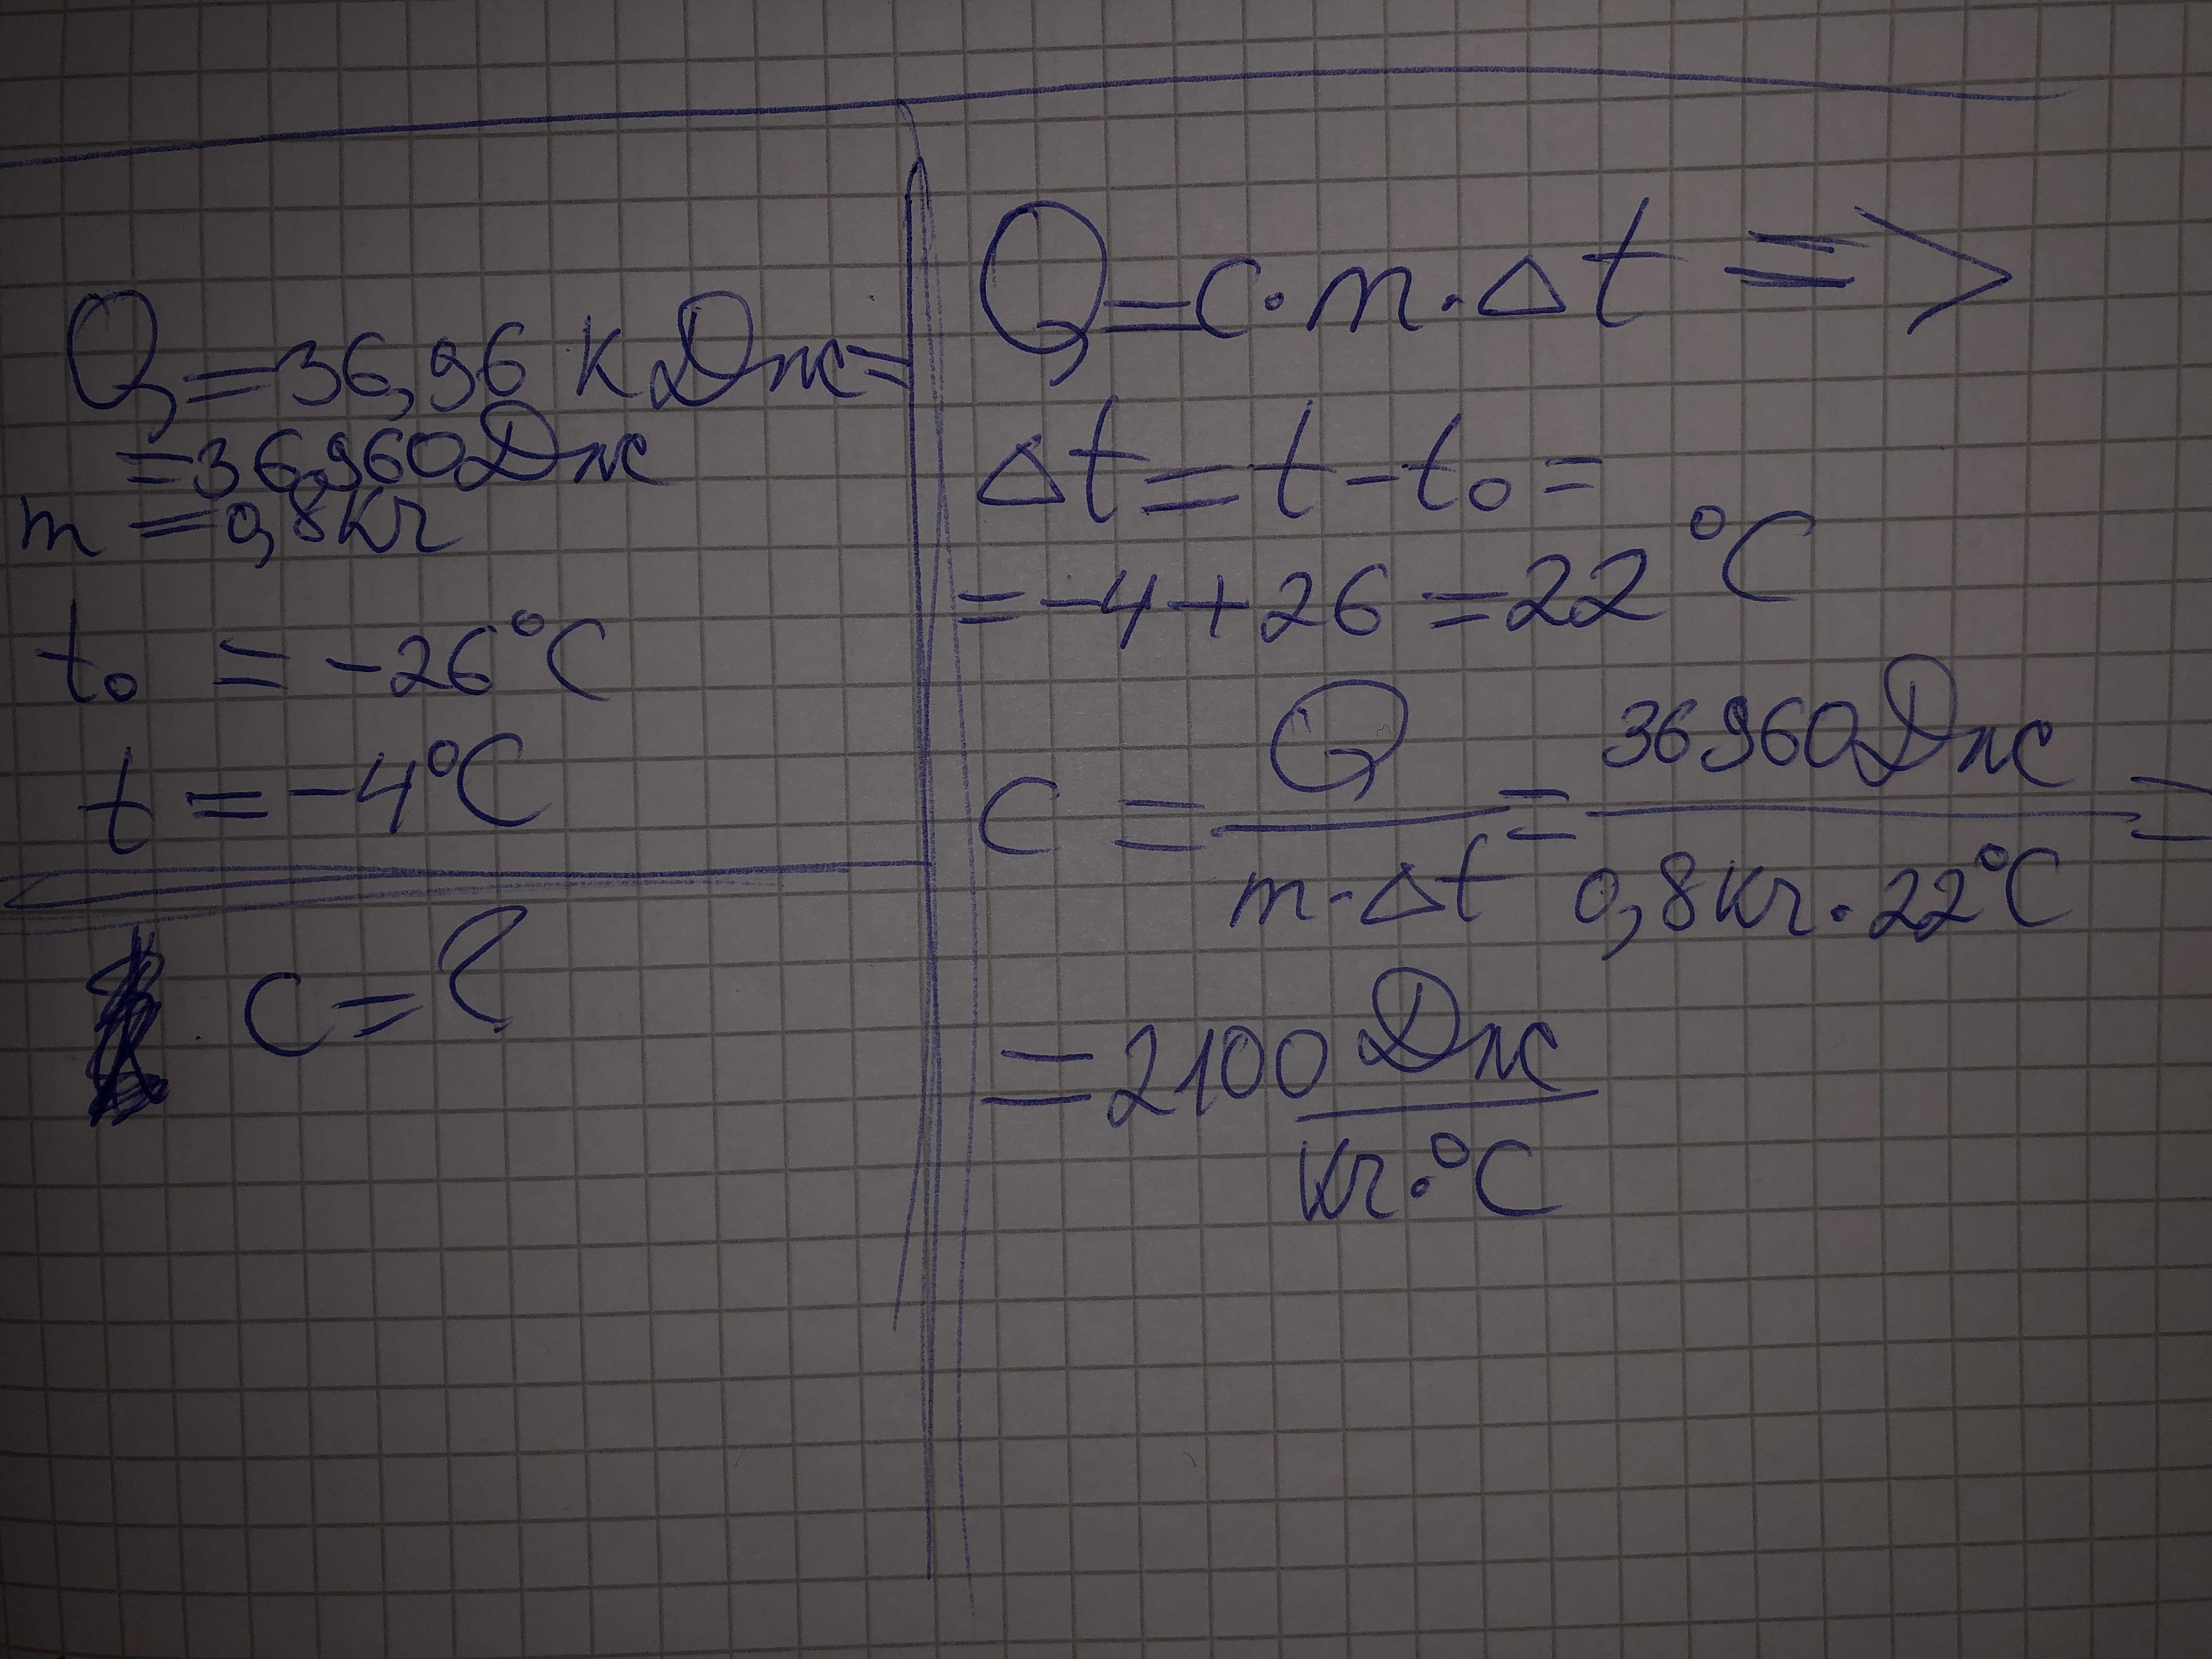 Q = 36,96 кДж =
= 36960 Дж
m = 0,8 кг
t₀ = -26°C
t = -4°C
c = ?
Q = c · m · Δt =>
Δt = t - t₀ =
= -4 + 26 = 22 °C
c = Q / (m · Δt) = 36960 Дж / (0,8 кг · 22°C) =
= 2100 Дж / (кг · °C)